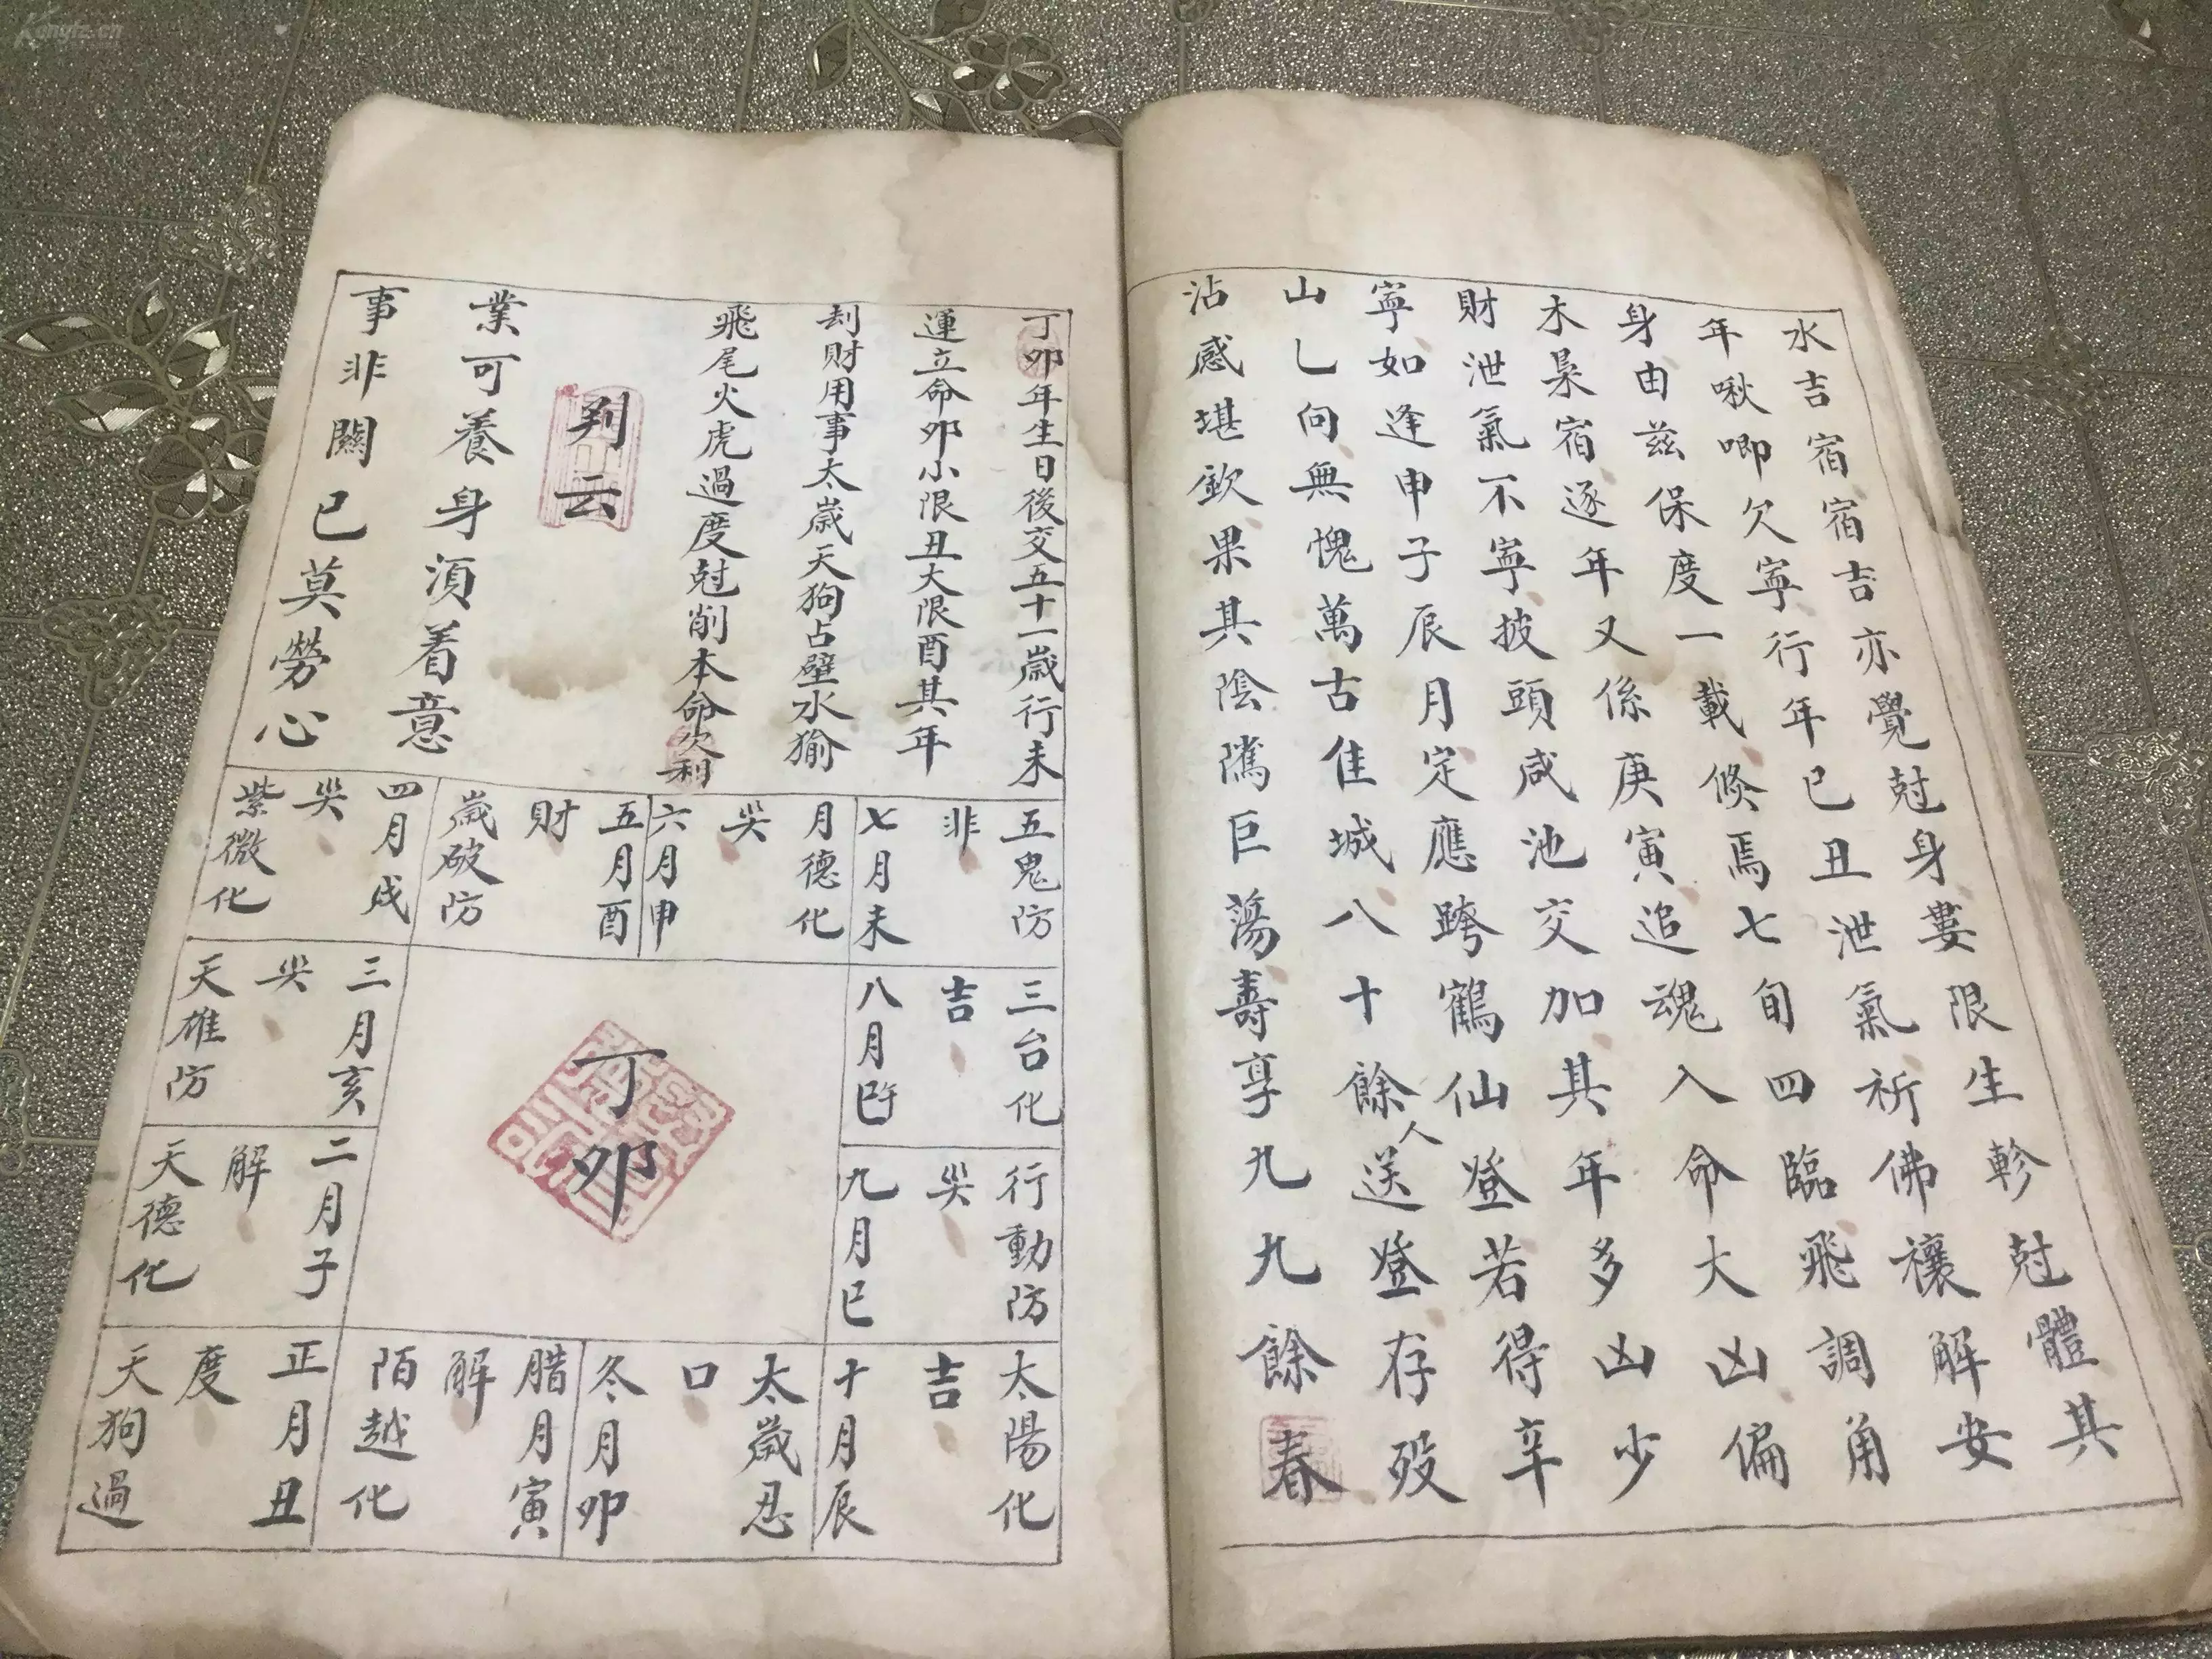 水吉宿宿吉亦覺尅身婁限生軫尅體其
年啾唧欠寧行年己丑泄氣祈佛禳解安
身由兹保度一載倏焉七旬四臨飛調角
木梟宿逐年又係庚寅追魂入命大凶偏
財泄氣不寧披頭咸池交加其年多凶少
寧如逢申子辰月定應跨鶴仙登若得辛
山乚向無愧萬古佳城八十餘人送登存殁
沾感堪欽果其陰隲巨蕩壽享九九餘春
丁卯年生日後交五十一歲行未
運立命卯小限丑大限酉其年
刦財用事太歲天狗占壁水㺄
飛尾火虎過度尅削本命欠利
判云
業可養身須着意
事非關己莫勞心
五鬼防
非
七月未
月德化
哭
六月申
五月酉
財
歲破防
四月戌
哭
紫微化
三台化
吉
八月午
三月亥
哭
天雄防
丁卯
行動防
哭
九月巳
二月子
解
天德化
太陽化
吉
十月辰
太歲忍
口
冬月卯
腊月寅
解
陌越化
正月丑
度
天狗過